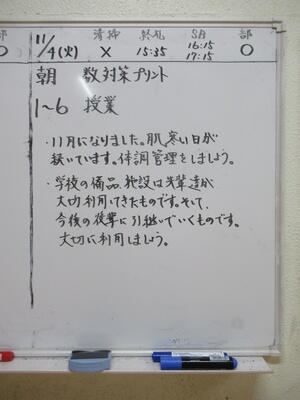 部 11/4(火) 清掃 終礼 SB 部
○ × 15:35 16:15 ○
17:15
朝 数対策プリント
1~6 授業
・11月になりました。肌寒い日が
続いています。体調管理をしましょう。
・学校の備品、施設は先輩達が
大切に利用してきたものです。そして、
今後の後輩に引継いでいくものです。
大切に利用しましょう。